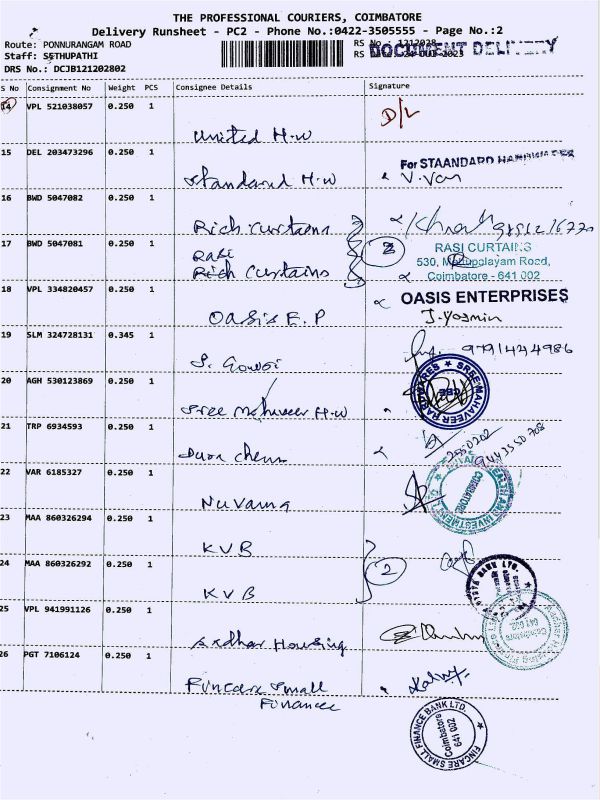 THE PROFESSIONAL COURIERS, COIMBATORE
Delivery Runsheet - PC2 - Phone No.:0422-3505555 - Page No.:2
Route: PONNURANGAM ROAD
RS No.: 1212028
DOCUMENT DELIVERY
Staff: SETHUPATHI
DRS No.: DCJB121202802
S No Consignment No Weight PCS Consignee Details Signature
14 VPL 521038057 0.250 1
D/L
United H.W
15 DEL 203473296 0.250 1
For STAANDARD
Standard H.W
16 BWD 5047082 0.250 1
Rich Curtains
17 BWD 5047081 0.250 1
RASI CURTAINS
Rasi
Rich Curtains
Coimbatore - 641 002
18 VPL 334820457 0.250 1
OASIS ENTERPRISES
Oasis E.P
J.Yasmin
19 SLM 324728131 0.345 1
9791424986
S. Gowri
20 AGH 530123869 0.250 1
SREE MAHAVEER HARDWARES
Sree Mahaveer H.W
21 TRP 6934593 0.250 1
22 VAR 6185327 0.250 1
COIMBATORE
Nuvama
23 MAA 860326294 0.250 1
KVB
24 MAA 860326292 0.250 1
2
KVB
25 VPL 941991126 0.250 1
Coimbatore
641 002
Aadhar Housing
26 PGT 7106124 0.250 1
Fincare Small
Finance
FINCARE SMALL FINANCE BANK LTD.
Coimbatore
641 002